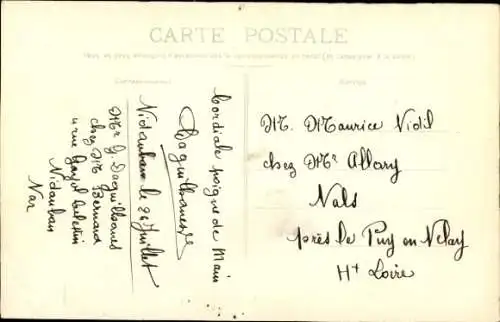 CARTE POSTALE
Correspondance
Cordiale poigne de Main
Daguilhanes
Vidauban le 26 Juillet
Mr G. Daguilhanes
chez Mr Bernard
4 rue
Vidauban
Var
M. Maurice Vidil
chez Mr Allary
Vals
près Le Puy en Velay
Hte Loire